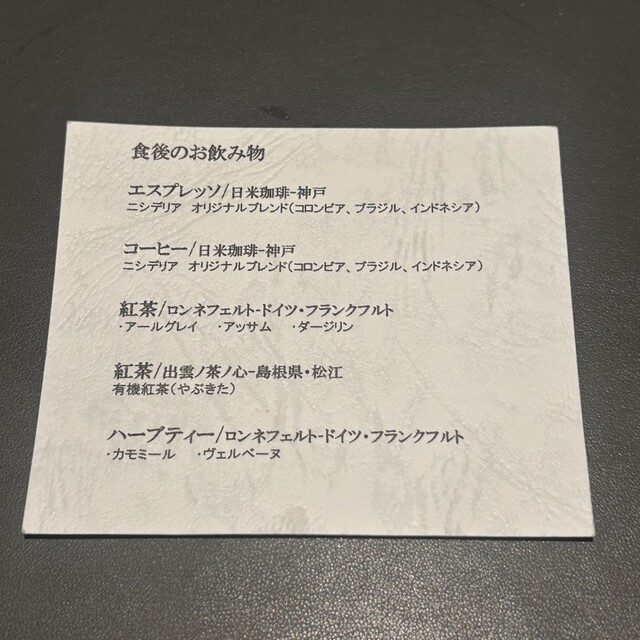 食後のお飲み物
エスプレッソ/日米珈琲-神戸
ニシデリア　オリジナルブレンド(コロンビア、ブラジル、インドネシア)
コーヒー/日米珈琲-神戸
ニシデリア　オリジナルブレンド(コロンビア、ブラジル、インドネシア)
紅茶/ロンネフェルト-ドイツ・フランクフルト
・アールグレイ　・アッサム　・ダージリン
紅茶/出雲ノ茶ノ心-島根県・松江
有機紅茶(やぶきた)
ハーブティー/ロンネフェルト-ドイツ・フランクフルト
・カモミール　・ヴェルベーヌ